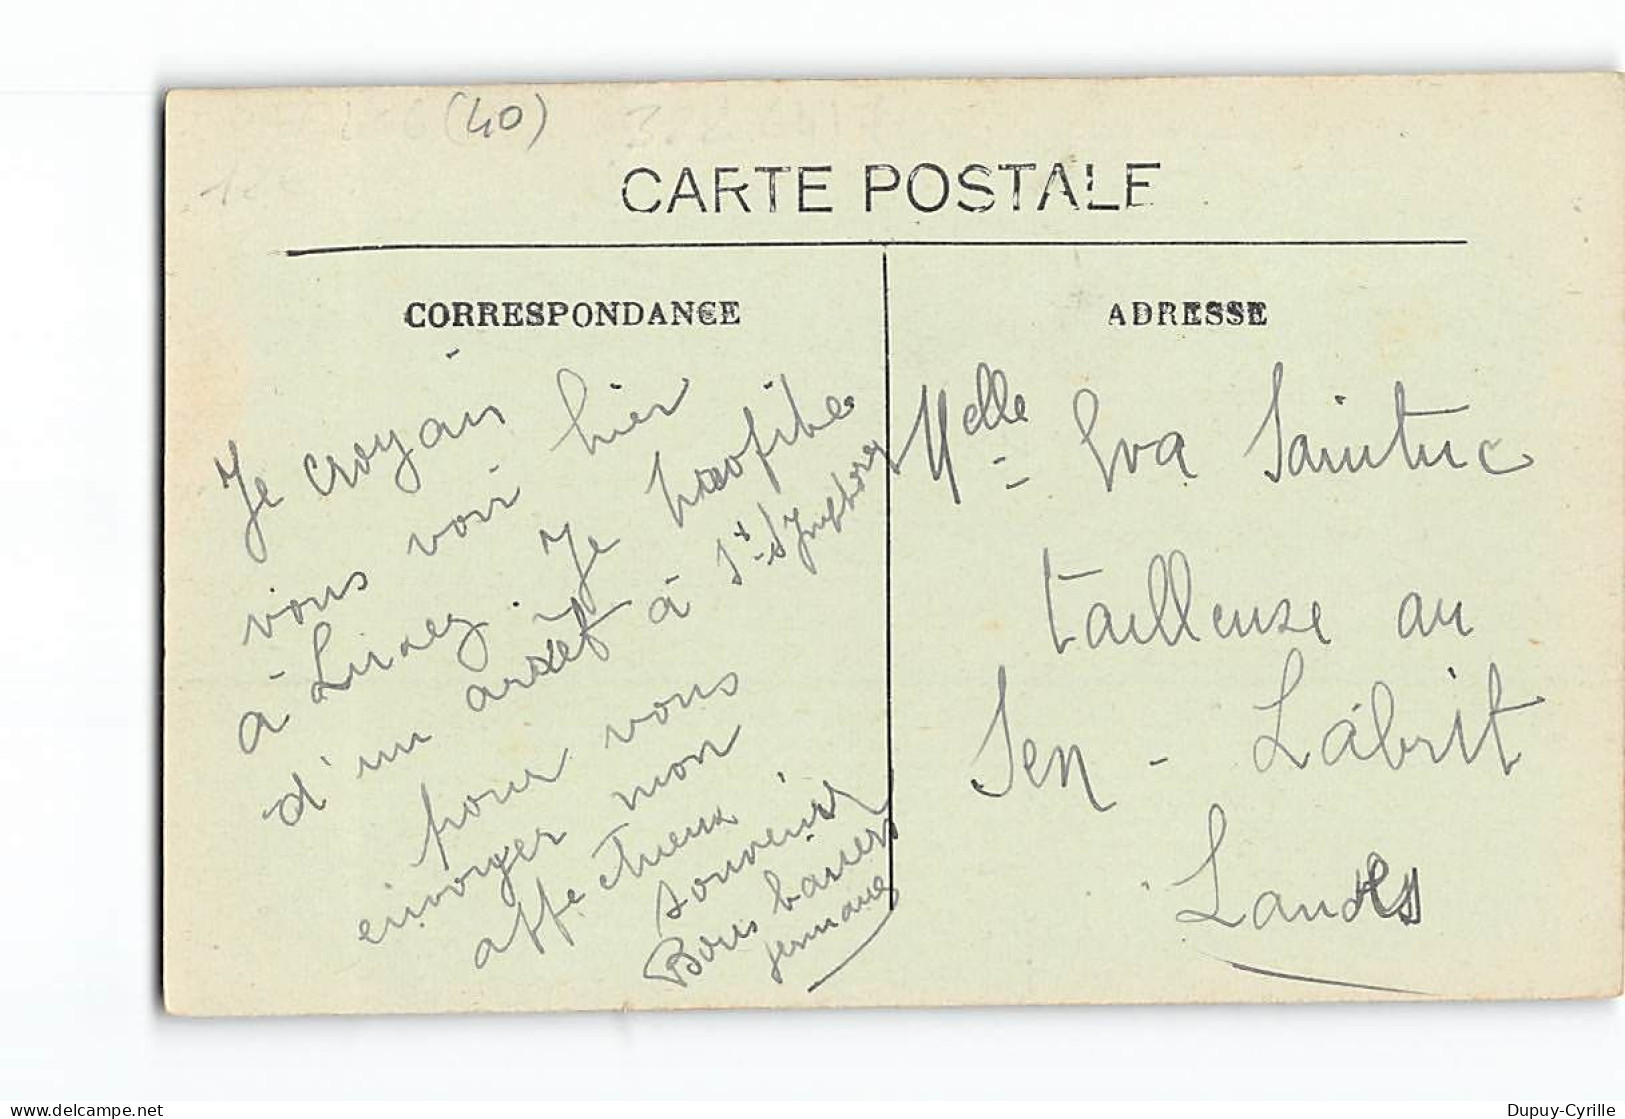 (40)
CARTE POSTALE
CORRESPONDANCE
Je croyais
vous voir hier
à Luxey. Je profite
d'un arrêt à St-Symphorien
pour vous
envoyer mon
affectueux
souvenir
Bons baisers
Germaine
ADRESSE
Melle Eva Saintuc
tailleuse au
Sen - Labrit
Landes
delcampe.net
Dupuy-Cyrille